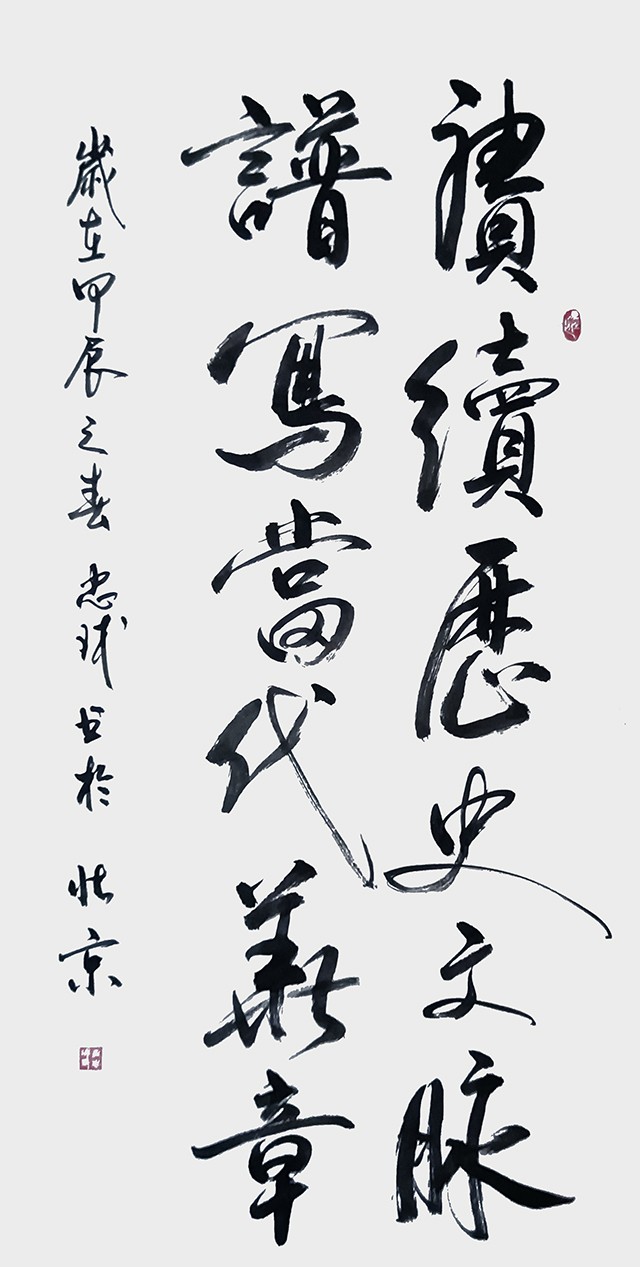 賡續歷史文脉
譜寫當代華章
歲在甲辰之春 忠球书於 北京